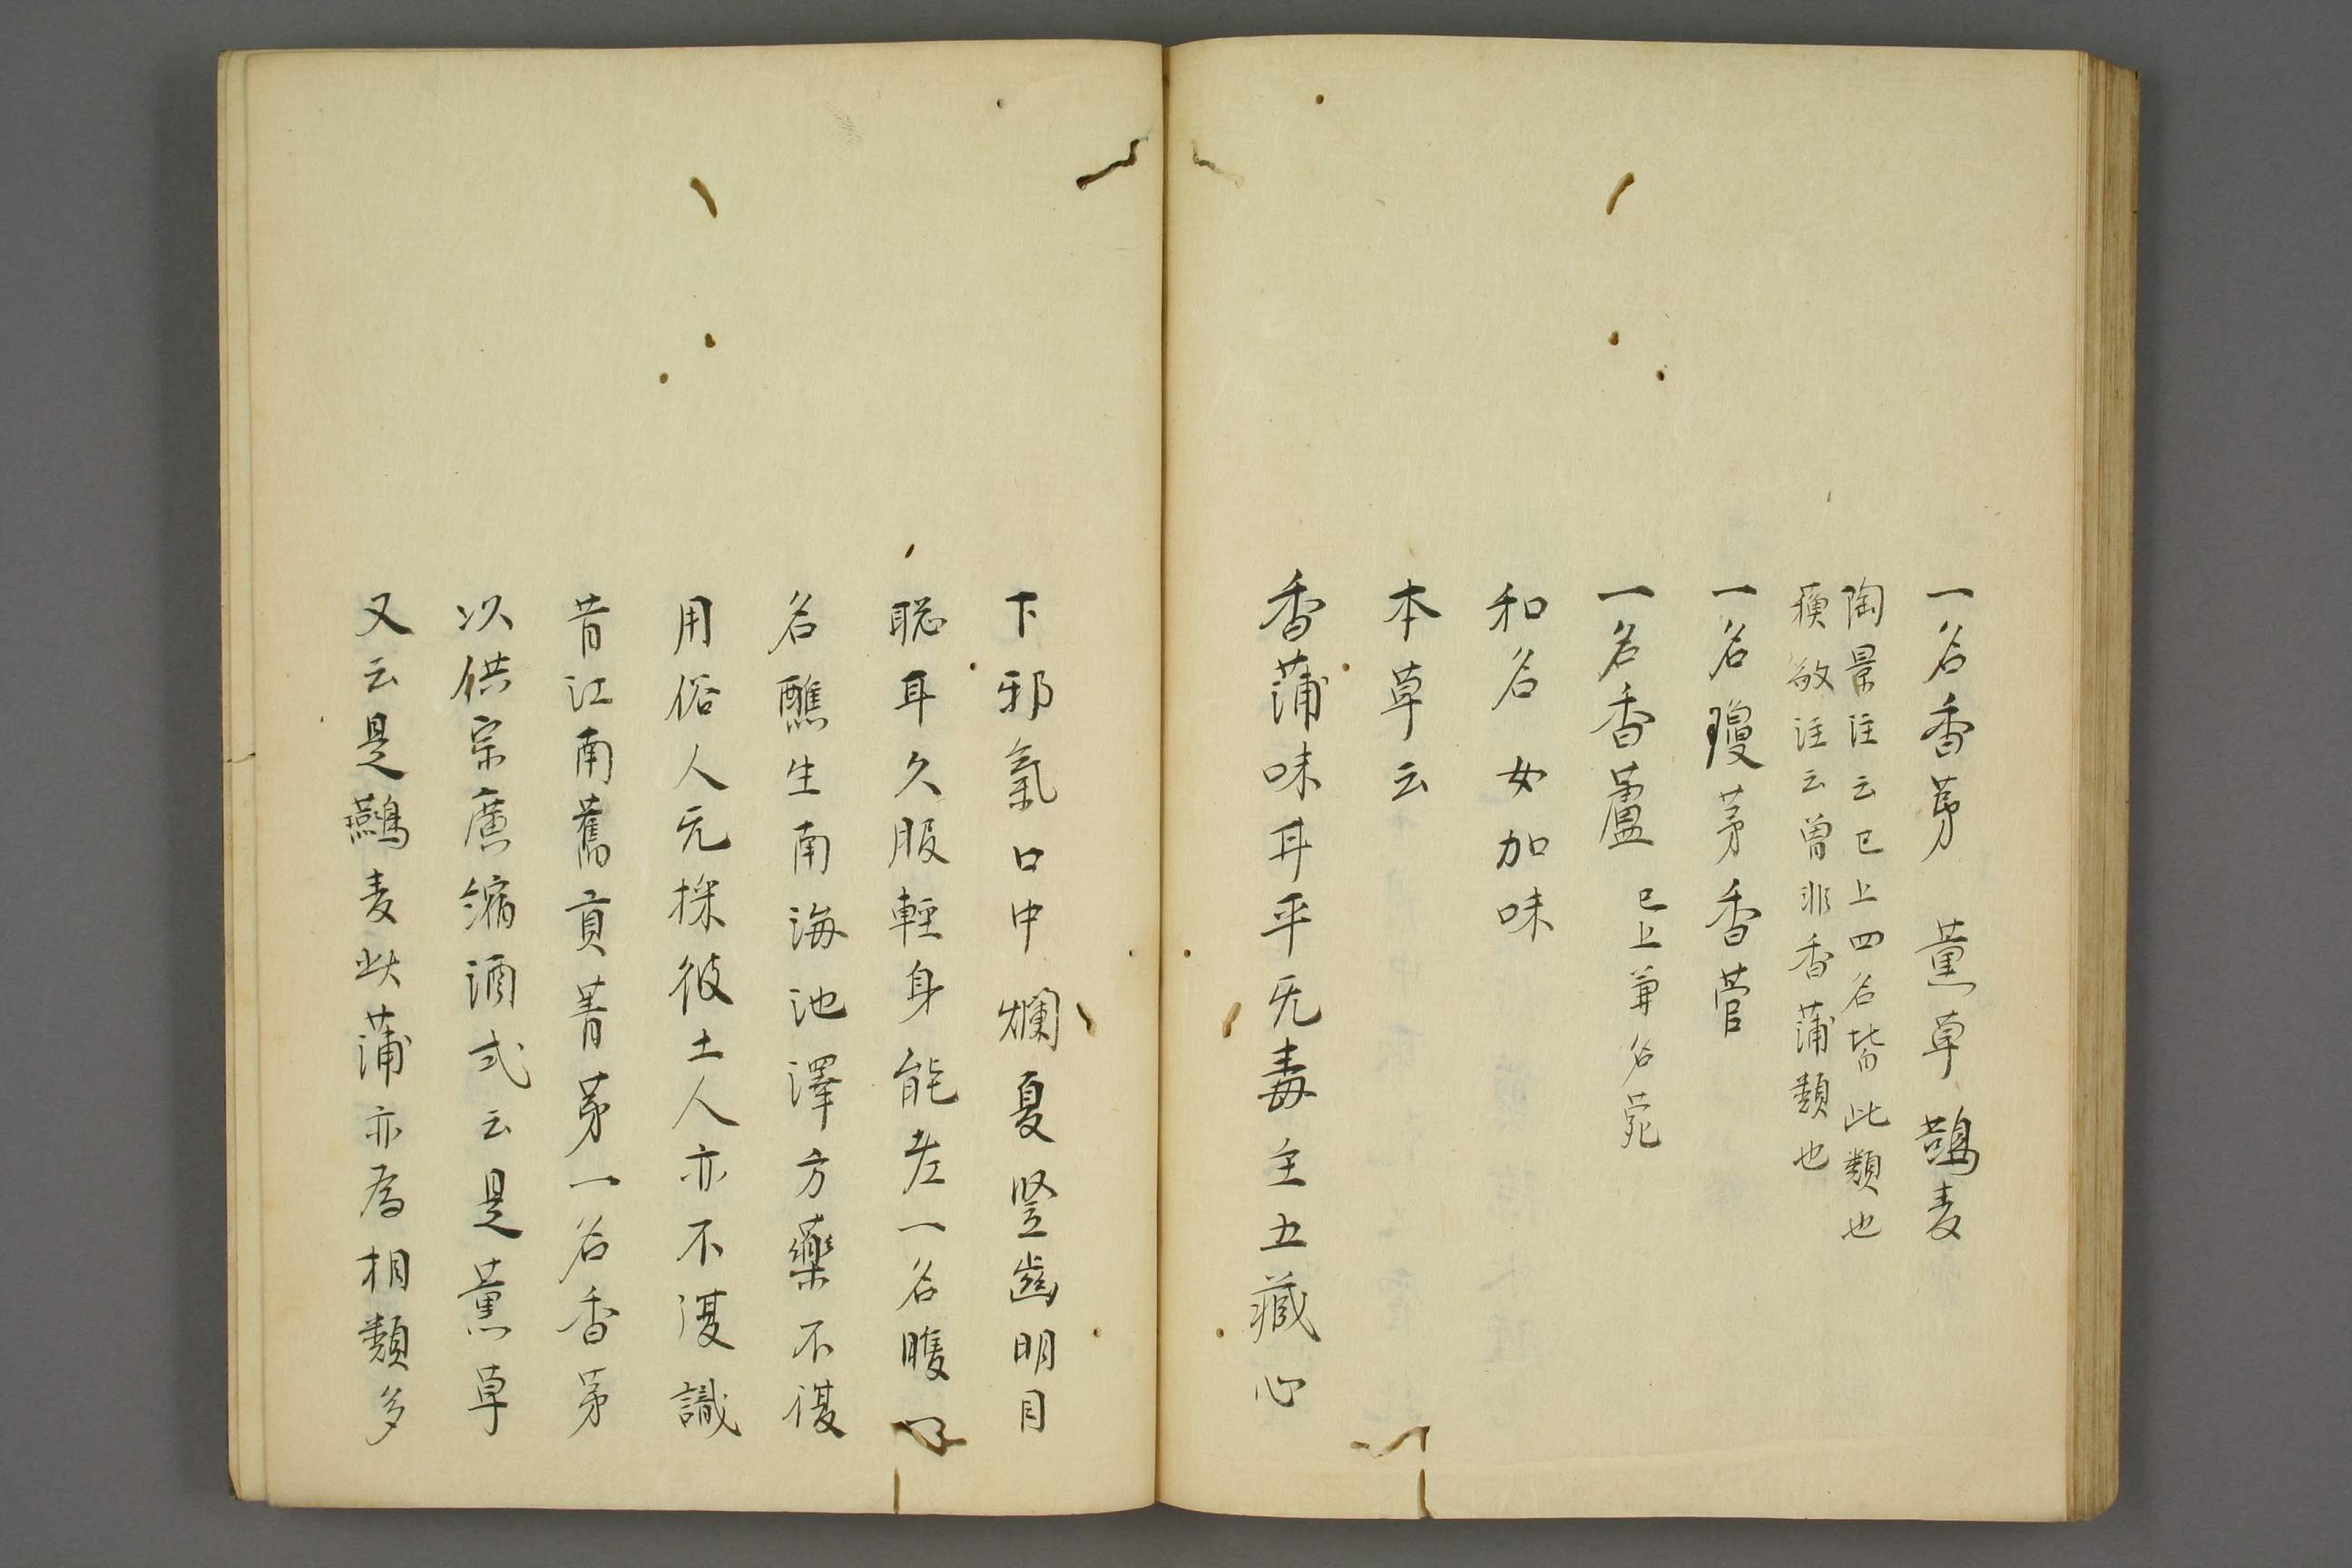 一名香茅　薫草　鷰麦
陶景注云已上四名皆此類也
蘓敬注云曽非香蒲類也
一名瓊茅香菅
一名香蘆　已上兼名苑
和名女加味
本草云
香蒲味耳平无毒主五藏心
下邪氣口中爛夏竪歯明目
聡耳久服輕身能老一名睢
名醮生南海池澤方藥不復
用俗人无採彼土人亦不復識
昔江南舊貢菁茅一名香茅
以供宗廣縮酒或云是薫草
又云是鷰麦此蒲亦為相類多